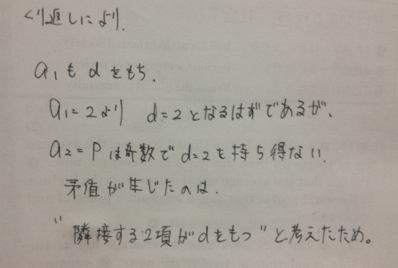 くり返しにより、
a₁もdをもち、
a₁=2より d=2となるはずであるが、
a₂=Pは奇数でd=2を持ち得ない
矛盾が生じたのは、
"隣接する2項がdをもつ"と考えたため。